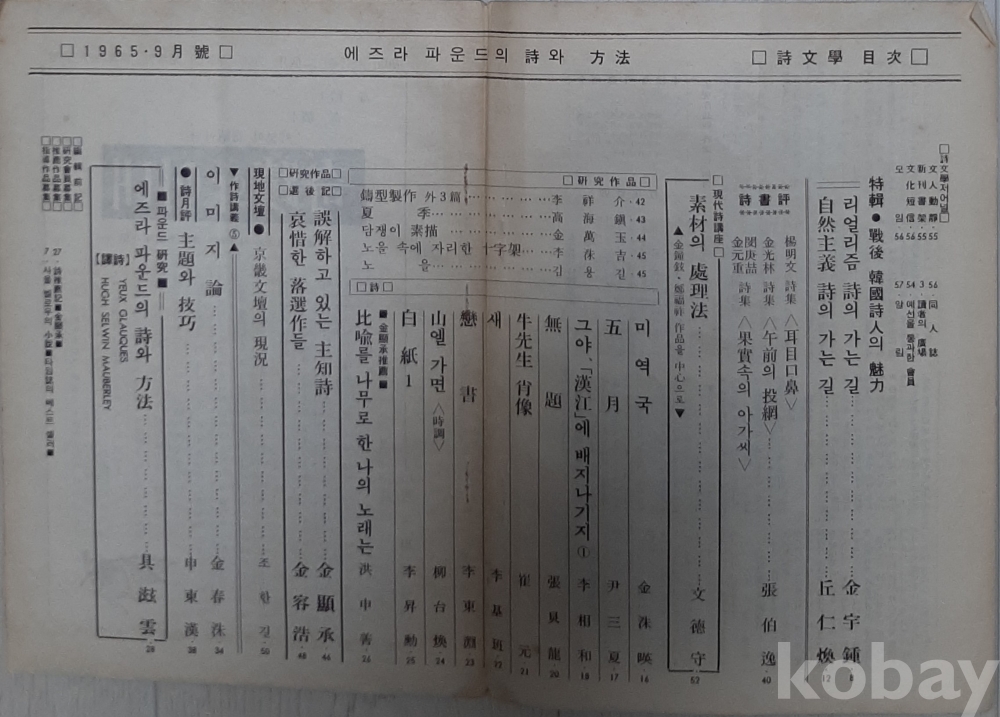 □詩文學 目次□
에즈라 파운드의 詩와 方法
□1965·9月 號□
□詩文學저어널□
文人動靜·55 56·同人誌
新刊書架·55 3·讀者의 廣場
文化短信·56 54·예선을 통과한 會員
모 임·56 57·알 림
特輯●戰後 韓國詩人의 魅力
리얼리즘 詩의 가는 길 金宇鍾 8
自然主義 詩의 가는 길 丘仁煥 12
詩書評
楊明文 詩集 〈耳目口鼻〉
金光林 詩集 〈午前의 投網〉 張伯逸 40
閔庚喆
金元重 詩集 〈果實속의 아가씨〉
□現代詩講座□
素材의 處理法 文德守 52
▲金鍾鉉·鄭福祚 作品을 中心으로▼
□硏究作品□
鑄型製作 外3篇 李祥介·42
夏季 高海鎭·43
담쟁이 素描 金萬玉·44
노을 속에 자리한 十字架 李洙吉·45
노을 김용길·45
□詩□
미역국 金洙暎 16
五月 尹三夏 17
그야,「漢江」에 배지나기지① 李相和 18
無題 張貝龍 20
牛先生 肖像 崔元 21
새 李基班 22
戀書 李東淵 23
山엘 가면〈時調〉 柳台煥 24
白紙 1 李昇勳 25
■金顯承推薦■
比喩를 나무로 한 나의 노래는 洪申善 26
□硏究作品□
□選後記□
誤解하고 있는 主知詩 金顯承 46
哀惜한 落選作들 金容浩 48
現地文壇●京畿文壇의 現況 조한길·50
▼作詩講義⑤▲
이미지論 金春洙·34
●詩月評●主題와 技巧 申東漢·38
■파운드 硏究■
에즈라 파운드의 詩와 方法 具滋雲·28
【詩譯】 YEUX GLAUQUES
HUGH SELWIN MAUBERLEY
27·詩推薦記■金顯承■
7·사울 벨로우의 小說■타임誌의 베스트 셀러■
□編輯前記□
□硏究會員募集□
□推薦作品募集□
kobay